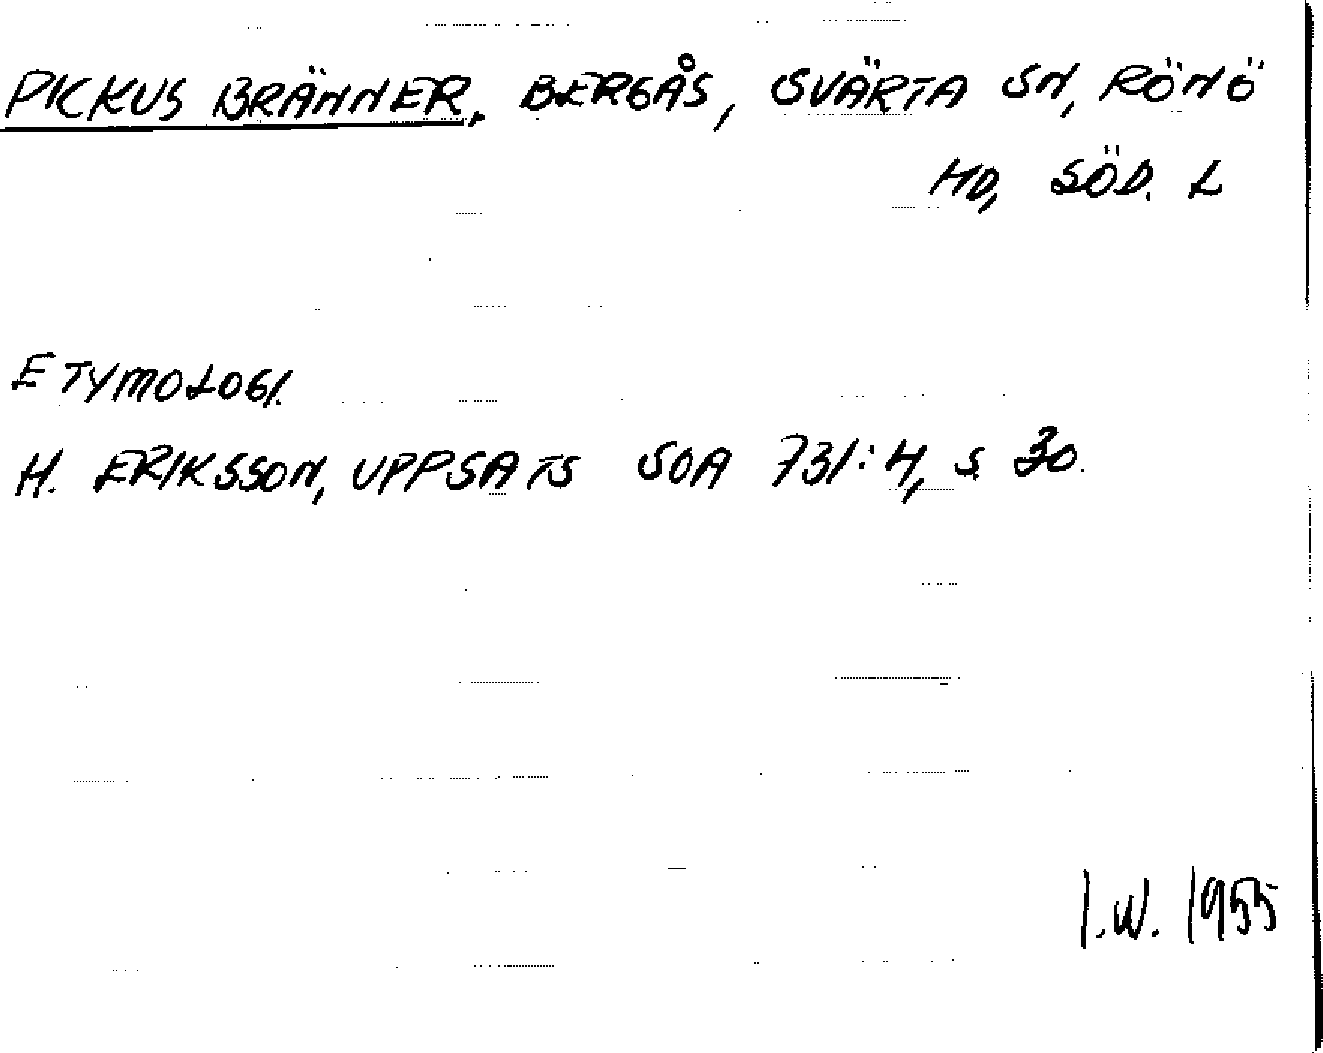 PICKUS BRÄNNER, BERGÅS, SVÄRTA SN, RÖNÖ
HD, SÖD. L
ETYMOLOGI.
H. ERIKSSON, UPPSATS SOA 731:4, S. 30.
I.W. 1955